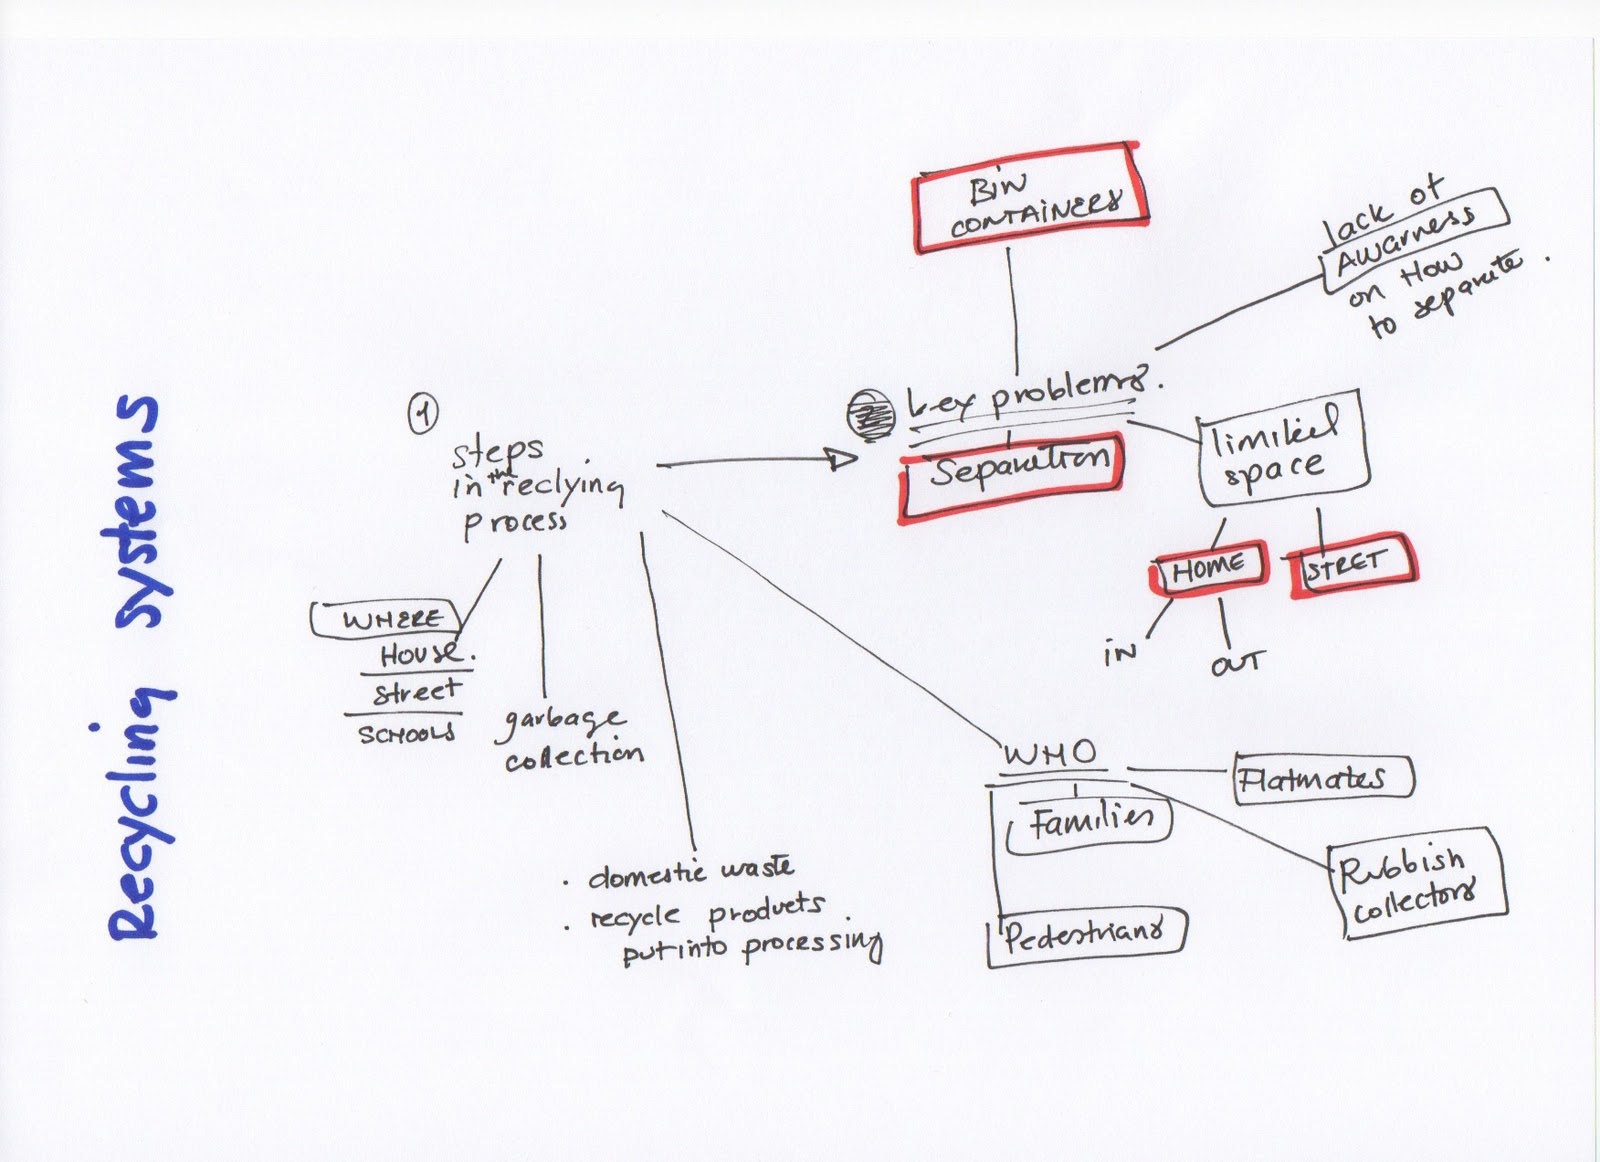 Recycling systems
1
steps
in the reclying
process
WHERE
House.
street
SCHOOLS
garbage
collection
. domestic waste
. recycle products
put into processing
2
key problems.
BiN
CONTAiNERS
Separation
lack of
AWarness
on How
to separate.
limited
space
HOME
STRET
iN
OUT
WHO
Flatmates
Families
Rubbish
collectors
Pedestrians